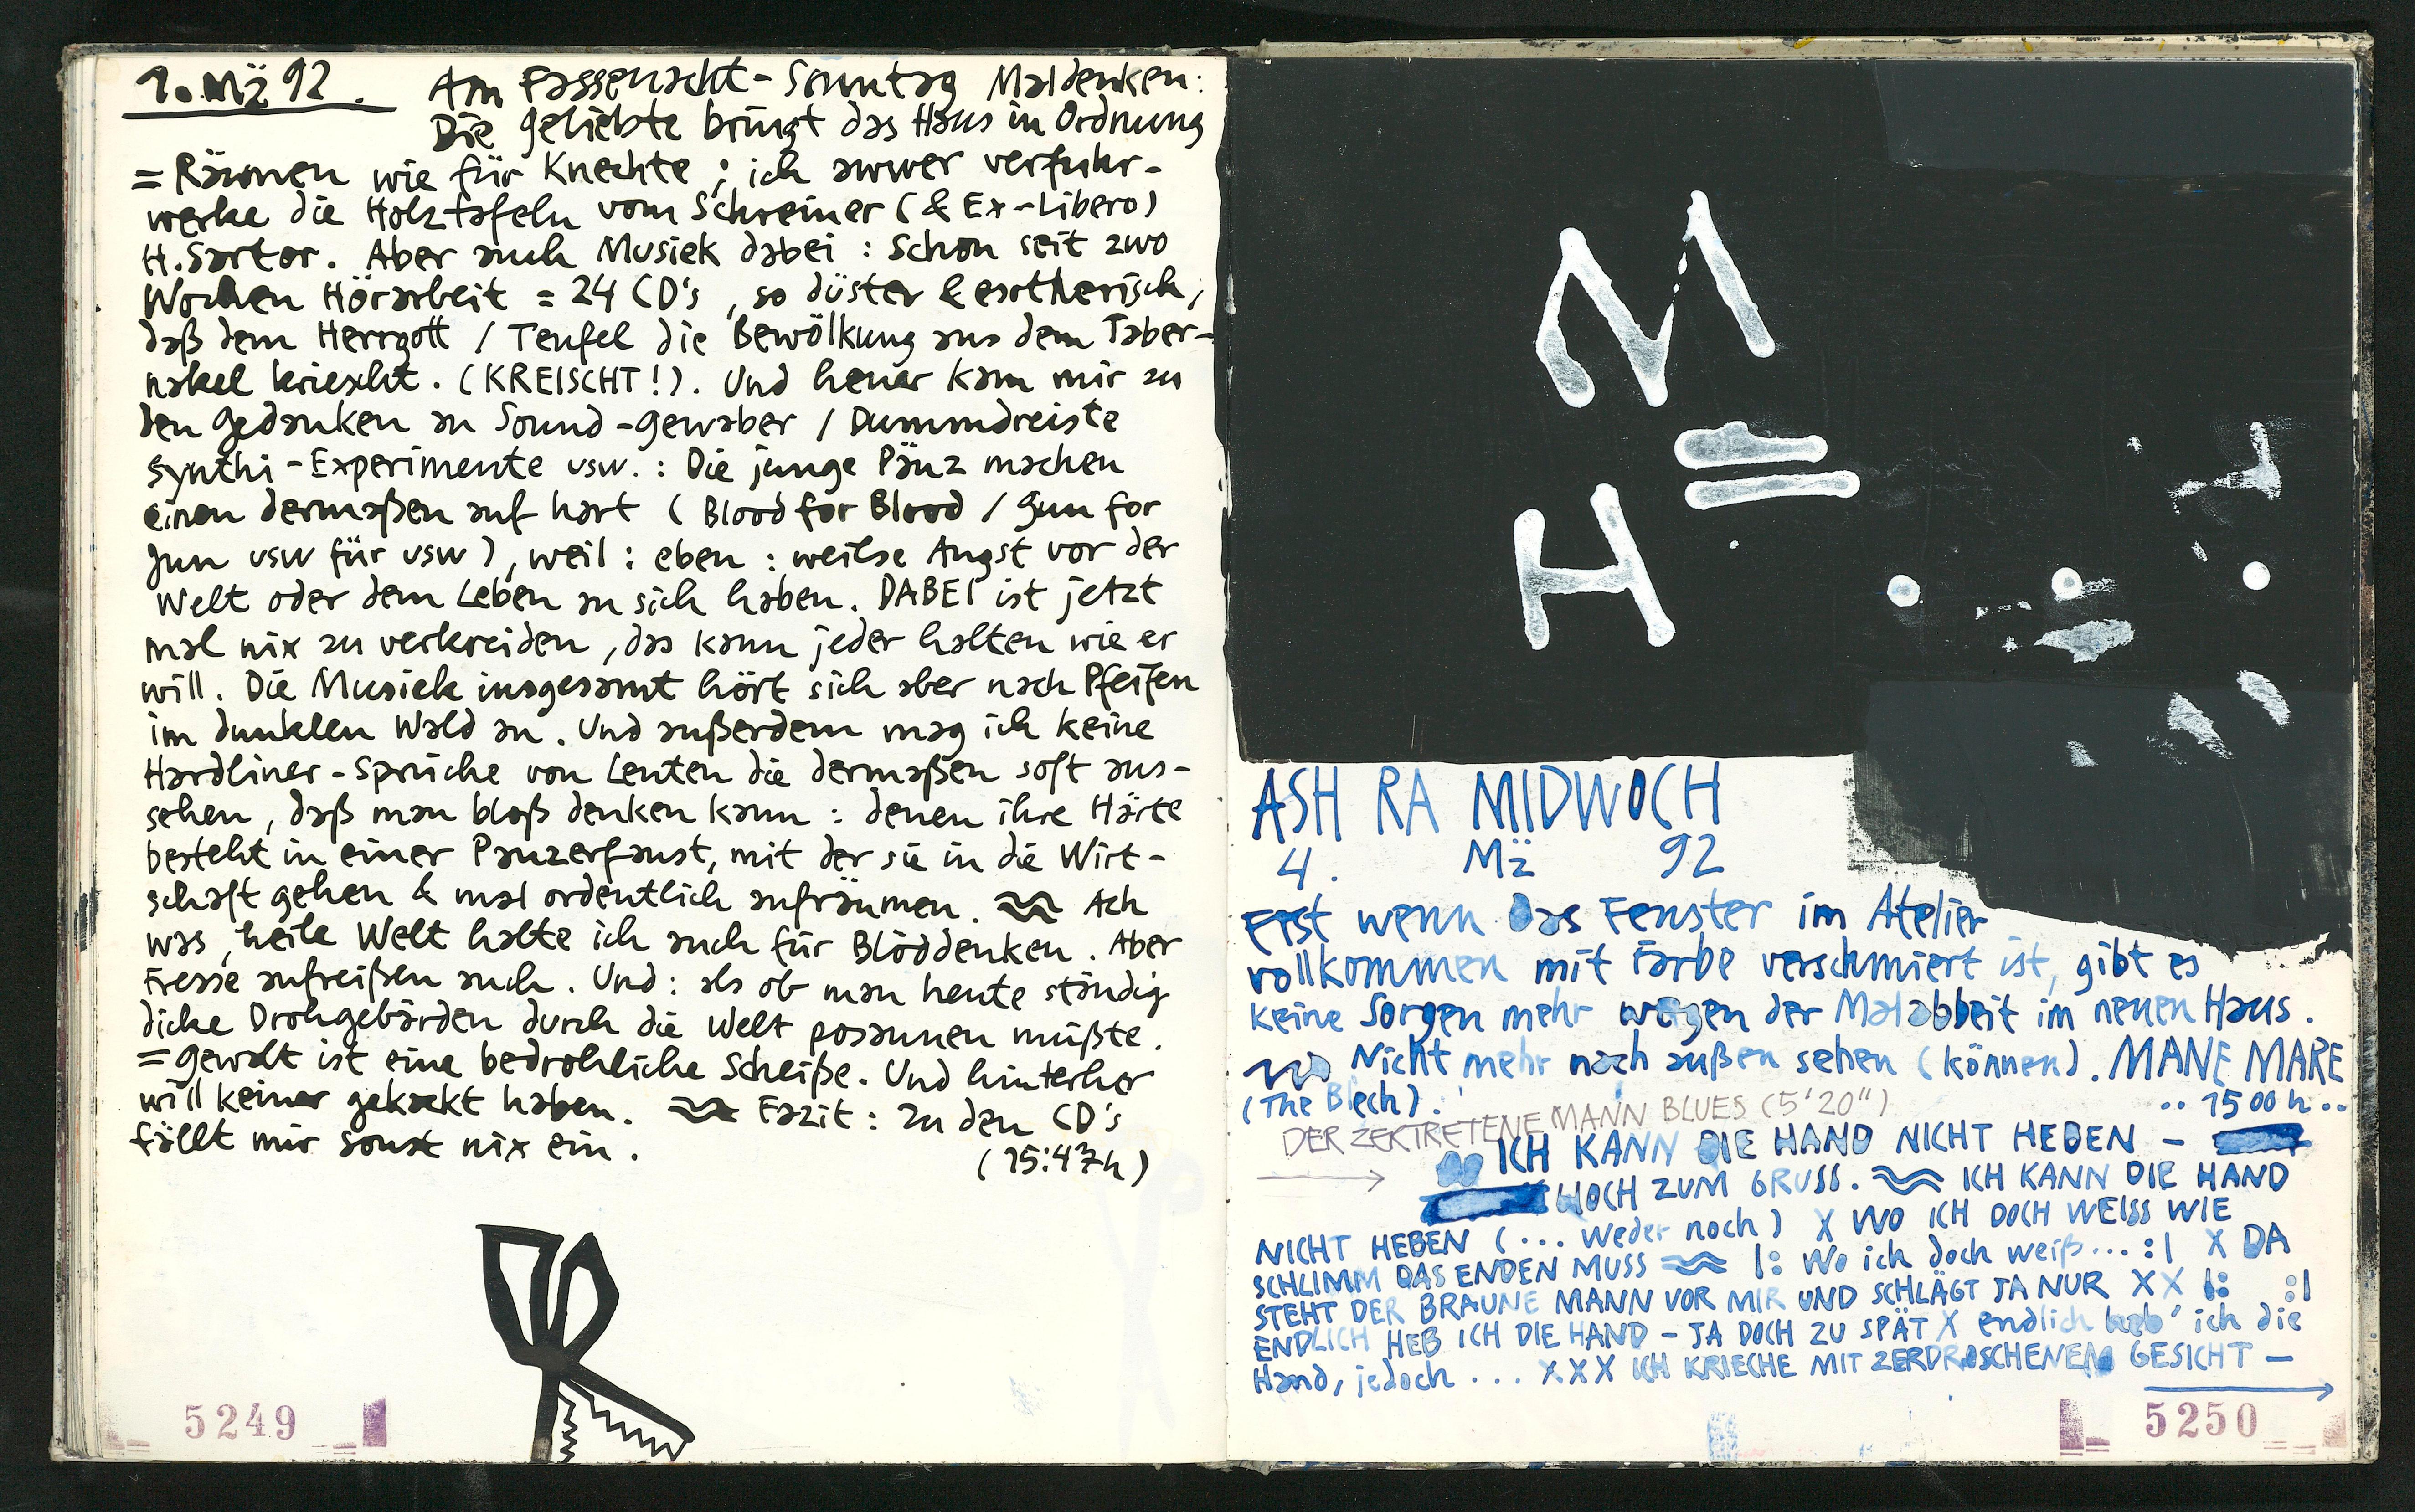 1. Mä 92.
Am Fassenacht-Sonntag Maldenken:
Die Geliebte bringt das Haus in Ordnung
= Räumen wie für Knechte; ich awwer verfuhr-
werke die Holztafeln vom Schreiner (& Ex-Libero)
H. Sartor. Aber auch Musiek dabei: Schon seit zwo
Wochen Hörarbeit = 24 CD's, so düster & esotherisch,
daß dem Herrgott / Teufel die Bewölkung aus dem Taber-
nakel kriescht. (KREISCHT!). Und heuer kam mir zu
den Gedanken an Sound-Gewaber / Dummdreiste
Synthi-Experimente usw.: Die junge Pänz machen
einen dermaßen auf hart (Blood for Blood / Gun for
Gun usw für usw), weil: eben: weilse Angst vor der
Welt oder dem Leben an sich haben. DABEI ist jetzt
mal nix zu verkreiden, das kann jeder halten wie er
will. Die Musiek insgesamt hört sich aber nach Pfeifen
im dunklen Wald an. Und außerdem mag ich keine
Hardliner-Sprüche von Leuten die dermaßen soft aus-
sehen, daß man bloß denken kann: denen ihre Härte
besteht in einer Panzerfaust, mit der sie in die Wirt-
schaft gehen & mal ordentlich aufräumen. ≈ Ach
was, heile Welt halte ich auch für Blöddenken. Aber
Fresse aufreißen auch. Und: als ob man heute ständig
dicke Drohgebärden durch die Welt posaunen müßte.
= Gewalt ist eine bedrohliche Scheiße. Und hinterher
will keiner gekackt haben. ≈ Fazit: zu den CD's
fällt mir sonst nix ein.
(15:47h)
5249
M
=
H
ASH RA MIDWOCH
4. Mä 92
Erst wenn das Fenster im Atelier
vollkommen mit Farbe verschmiert ist, gibt es
keine Sorgen mehr wegen der Malabbeit im neuen Haus.
Nicht mehr nach außen sehen (können). MANE MARE
(The Blech). .. 15 00 h ..
DER ZERTRETENE MANN BLUES (5'20")
→ ICH KANN DIE HAND NICHT HEBEN –
NOCH ZUM GRUSS. ≈ ICH KANN DIE HAND
NICHT HEBEN (... weder noch) X WO ICH DOCH WEISS WIE
SCHLIMM DAS ENDEN MUSS ≈ |: Wo ich doch weiß... :| X DA
STEHT DER BRAUNE MANN VOR MIR UND SCHLÄGT JA NUR XX |: :|
ENDLICH HEB ICH DIE HAND – JA DOCH ZU SPÄT X endlich heb' ich die
Hand, jedoch ... XXX ICH KRIECHE MIT ZERDROSCHENEM GESICHT –
→
5250